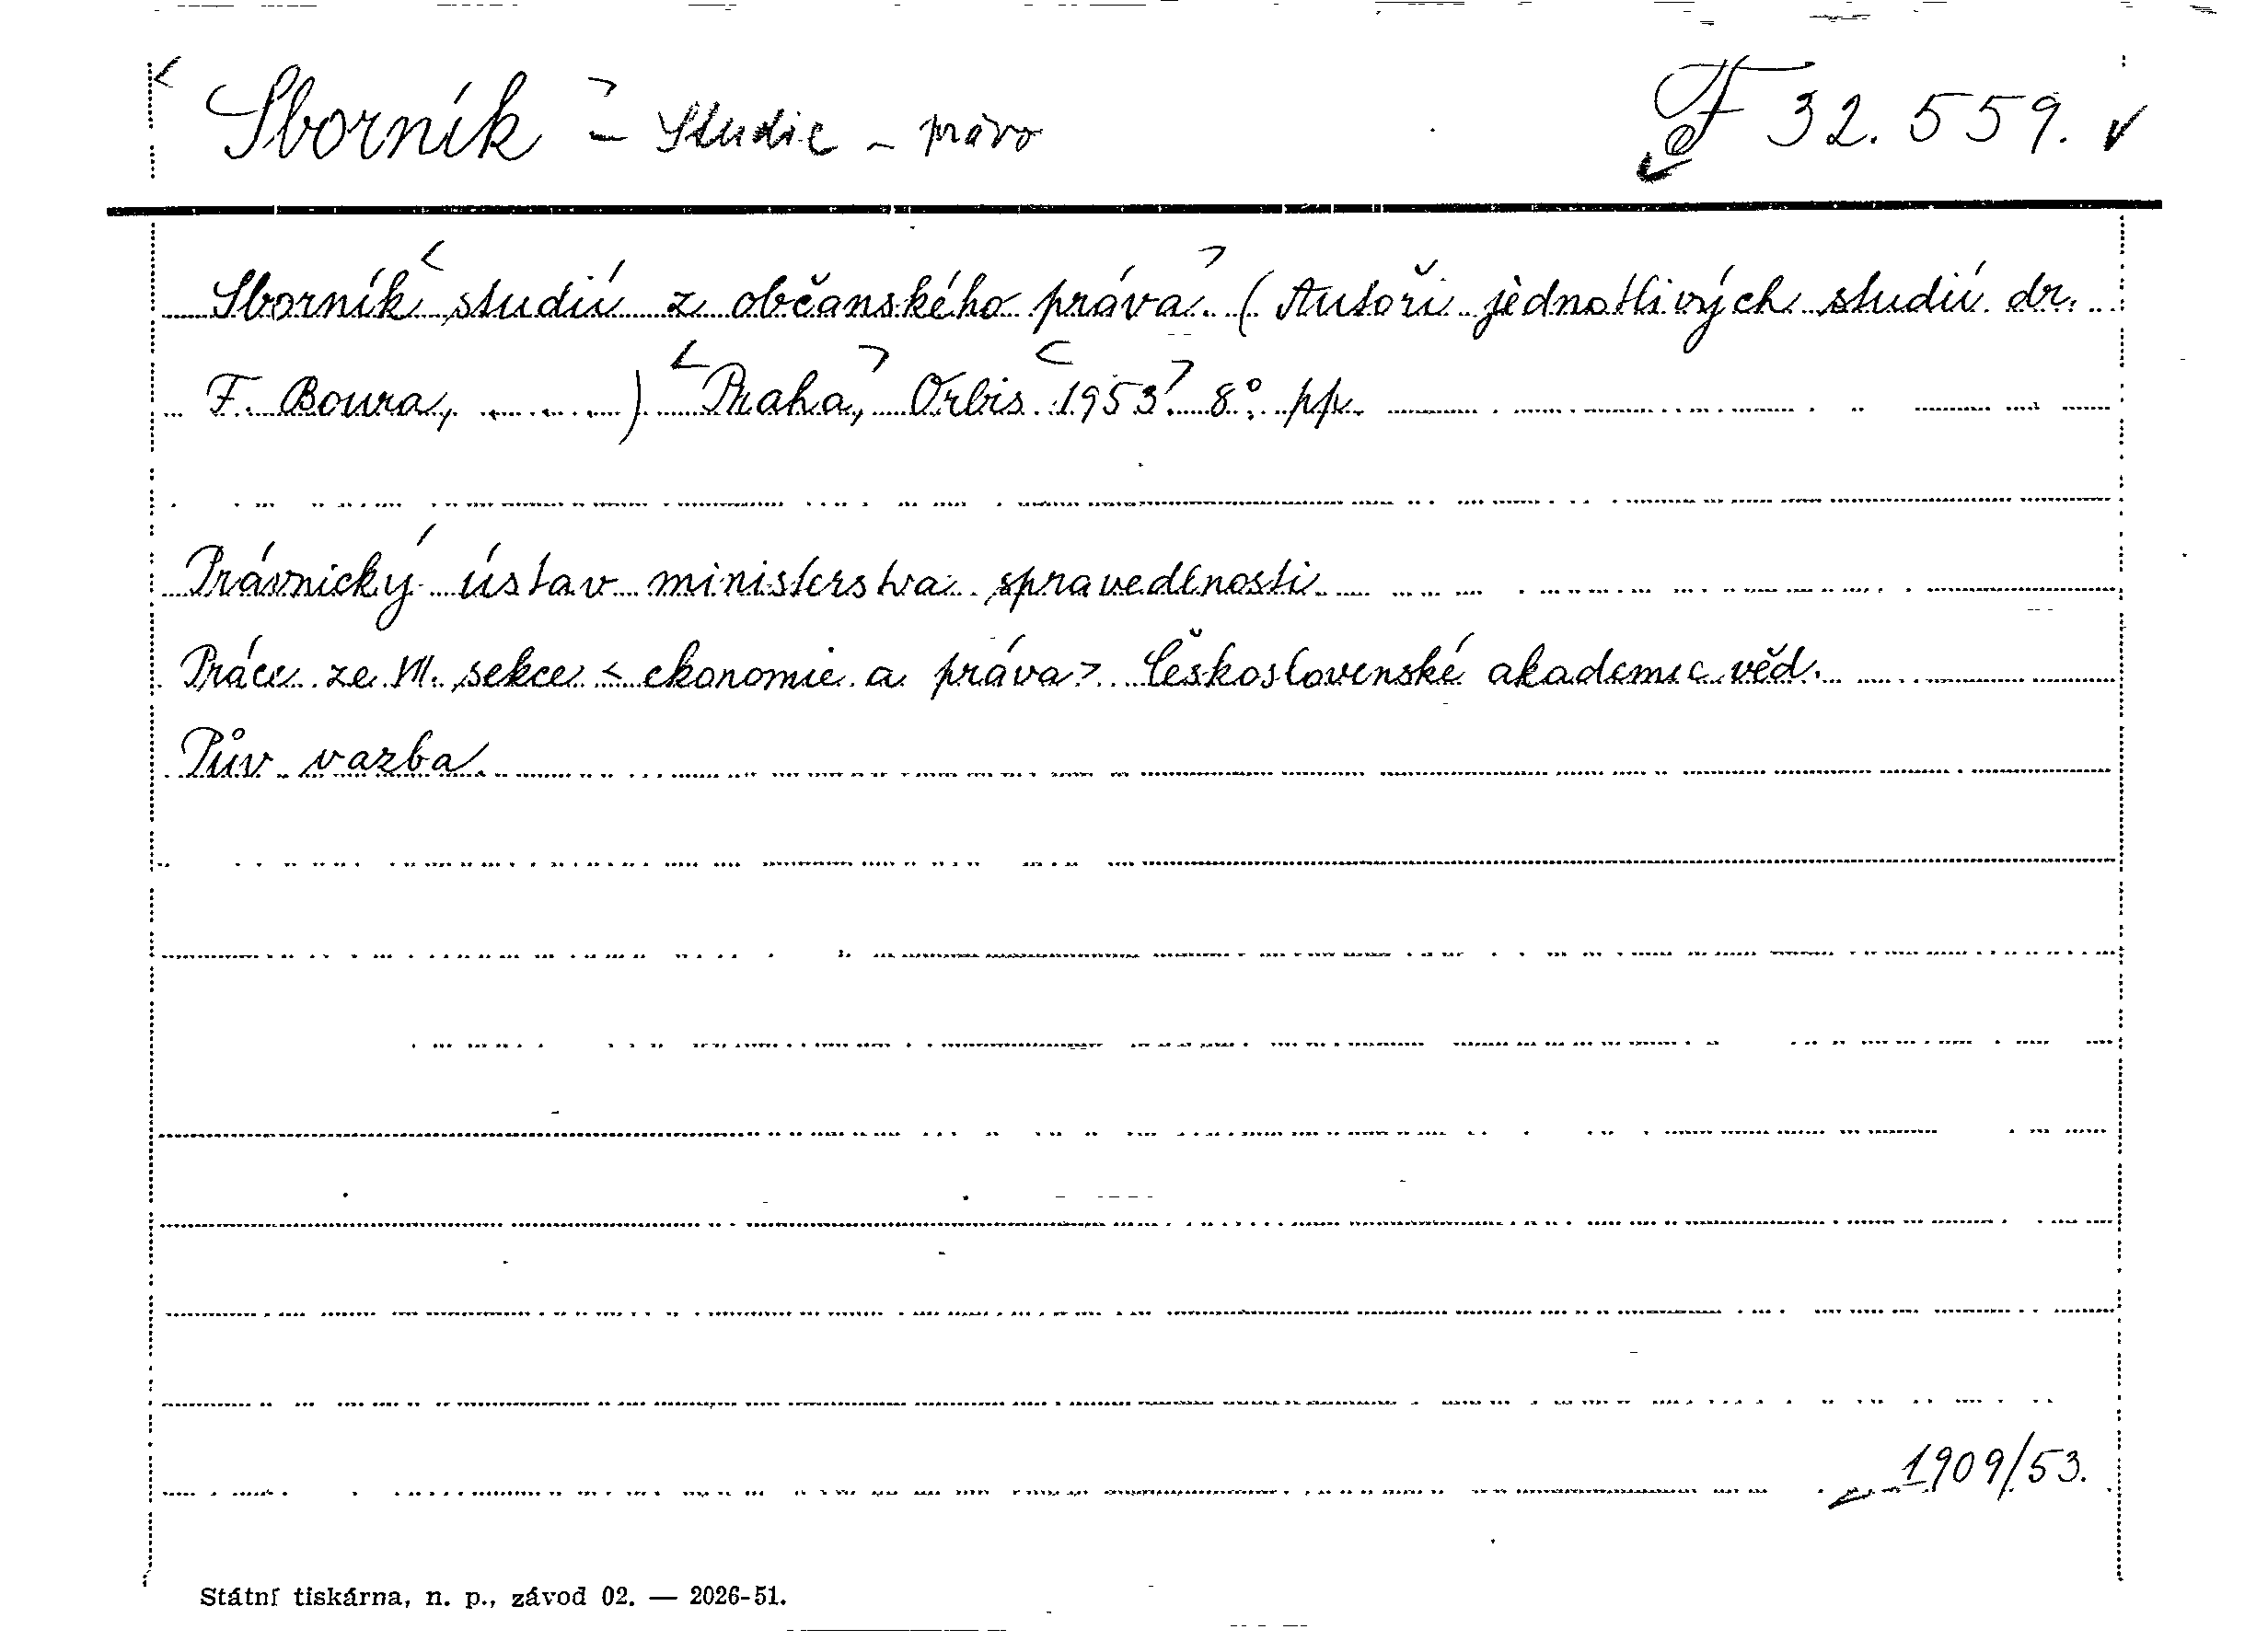 < Sborník > - Studie - právo F 32.559. ✓
Sborník < studií z občanského práva. > (Autoři jednotlivých studií dr.
F. Boura, .........) < Praha, > Orbis < 1953. > 8°. pp.
Právnický ústav ministerstva spravedlnosti.
Práce ze VII. sekce < ekonomie a práva > Československé akademie věd.
Pův. vazba.
1909/53.
Státní tiskárna, n. p., závod 02. — 2026-51.